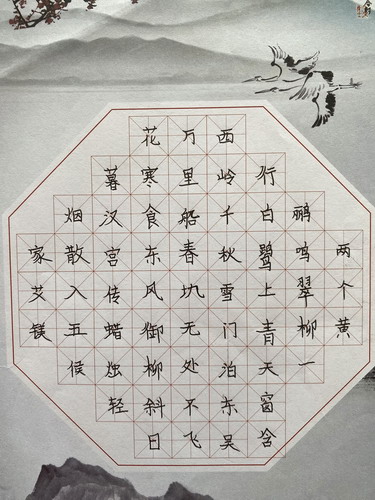 两个黄
鹂鸣翠柳一
行白鹭上青天窗含
西岭千秋雪门泊东吴
万里船春城无处不飞
花寒食东风御柳斜日
暮汉宫传蜡烛轻
烟散入五侯
家艾镁